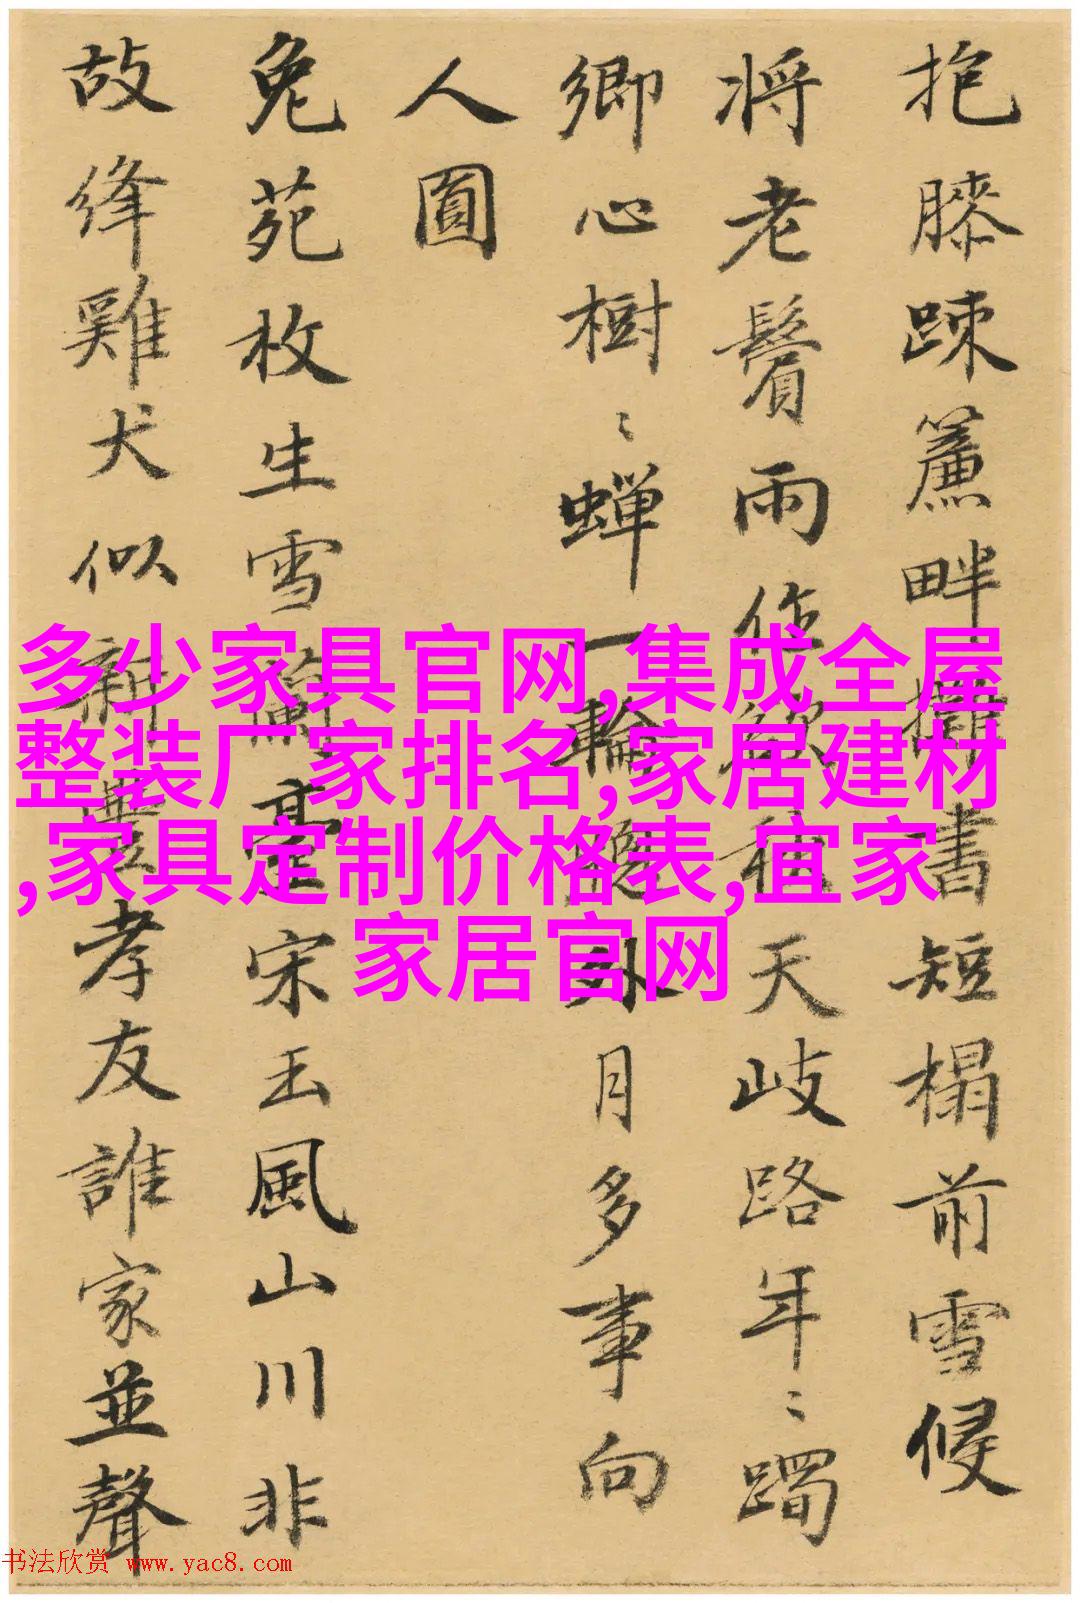 抱膝踈簾畔攤書短榻前雪侵
将老鬢雨作欲秋天岐路年〻躅
鄉心樹〻蟬一輪外月多事向
人圓
兔苑枚生雪蘭臺宋玉風山川非
故絳雞犬似新豐孝友誰家並聲
多少家具官网,集成全屋
整装厂家排名,家居建材
,家具定制价格表,宜家
家居官网
书法欣赏 www.yac8.com